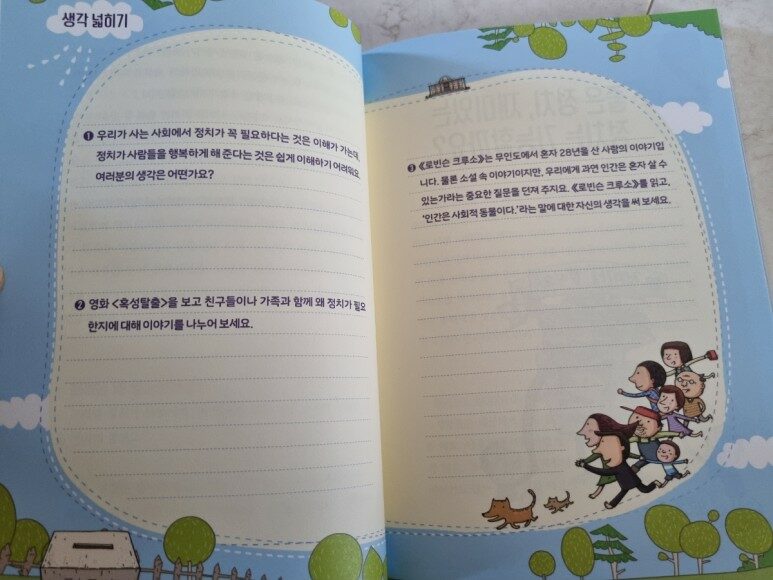 생각 넓히기
❶ 우리가 사는 사회에서 정치가 꼭 필요하다는 것은 이해가 가는데,
정치가 사람들을 행복하게 해 준다는 것은 쉽게 이해하기 어려워요.
여러분의 생각은 어떤가요?
❷ 영화 <혹성탈출>을 보고 친구들이나 가족과 함께 왜 정치가 필요
한지에 대해 이야기를 나누어 보세요.
❸ 《로빈슨 크루소》는 무인도에서 혼자 28년을 산 사람의 이야기입
니다. 물론 소설 속 이야기이지만, 우리에게 과연 인간은 혼자 살 수
있는가라는 중요한 질문을 던져 주지요. 《로빈슨 크루소》를 읽고,
'인간은 사회적 동물이다.'라는 말에 대한 자신의 생각을 써 보세요.